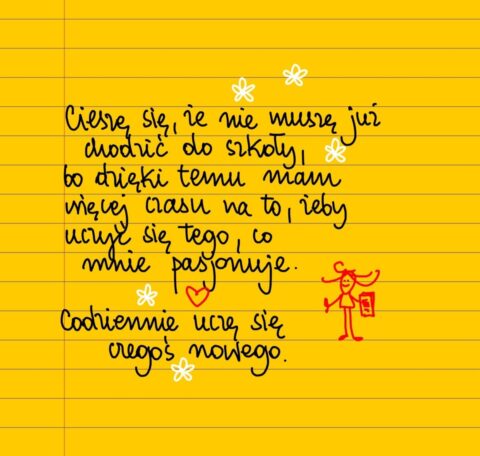 Cieszę się, że nie muszę już
chodzić do szkoły,
bo dzięki temu mam
więcej czasu na to, żeby
uczyć się tego, co
mnie pasjonuje.
Codziennie uczę się
czegoś nowego.